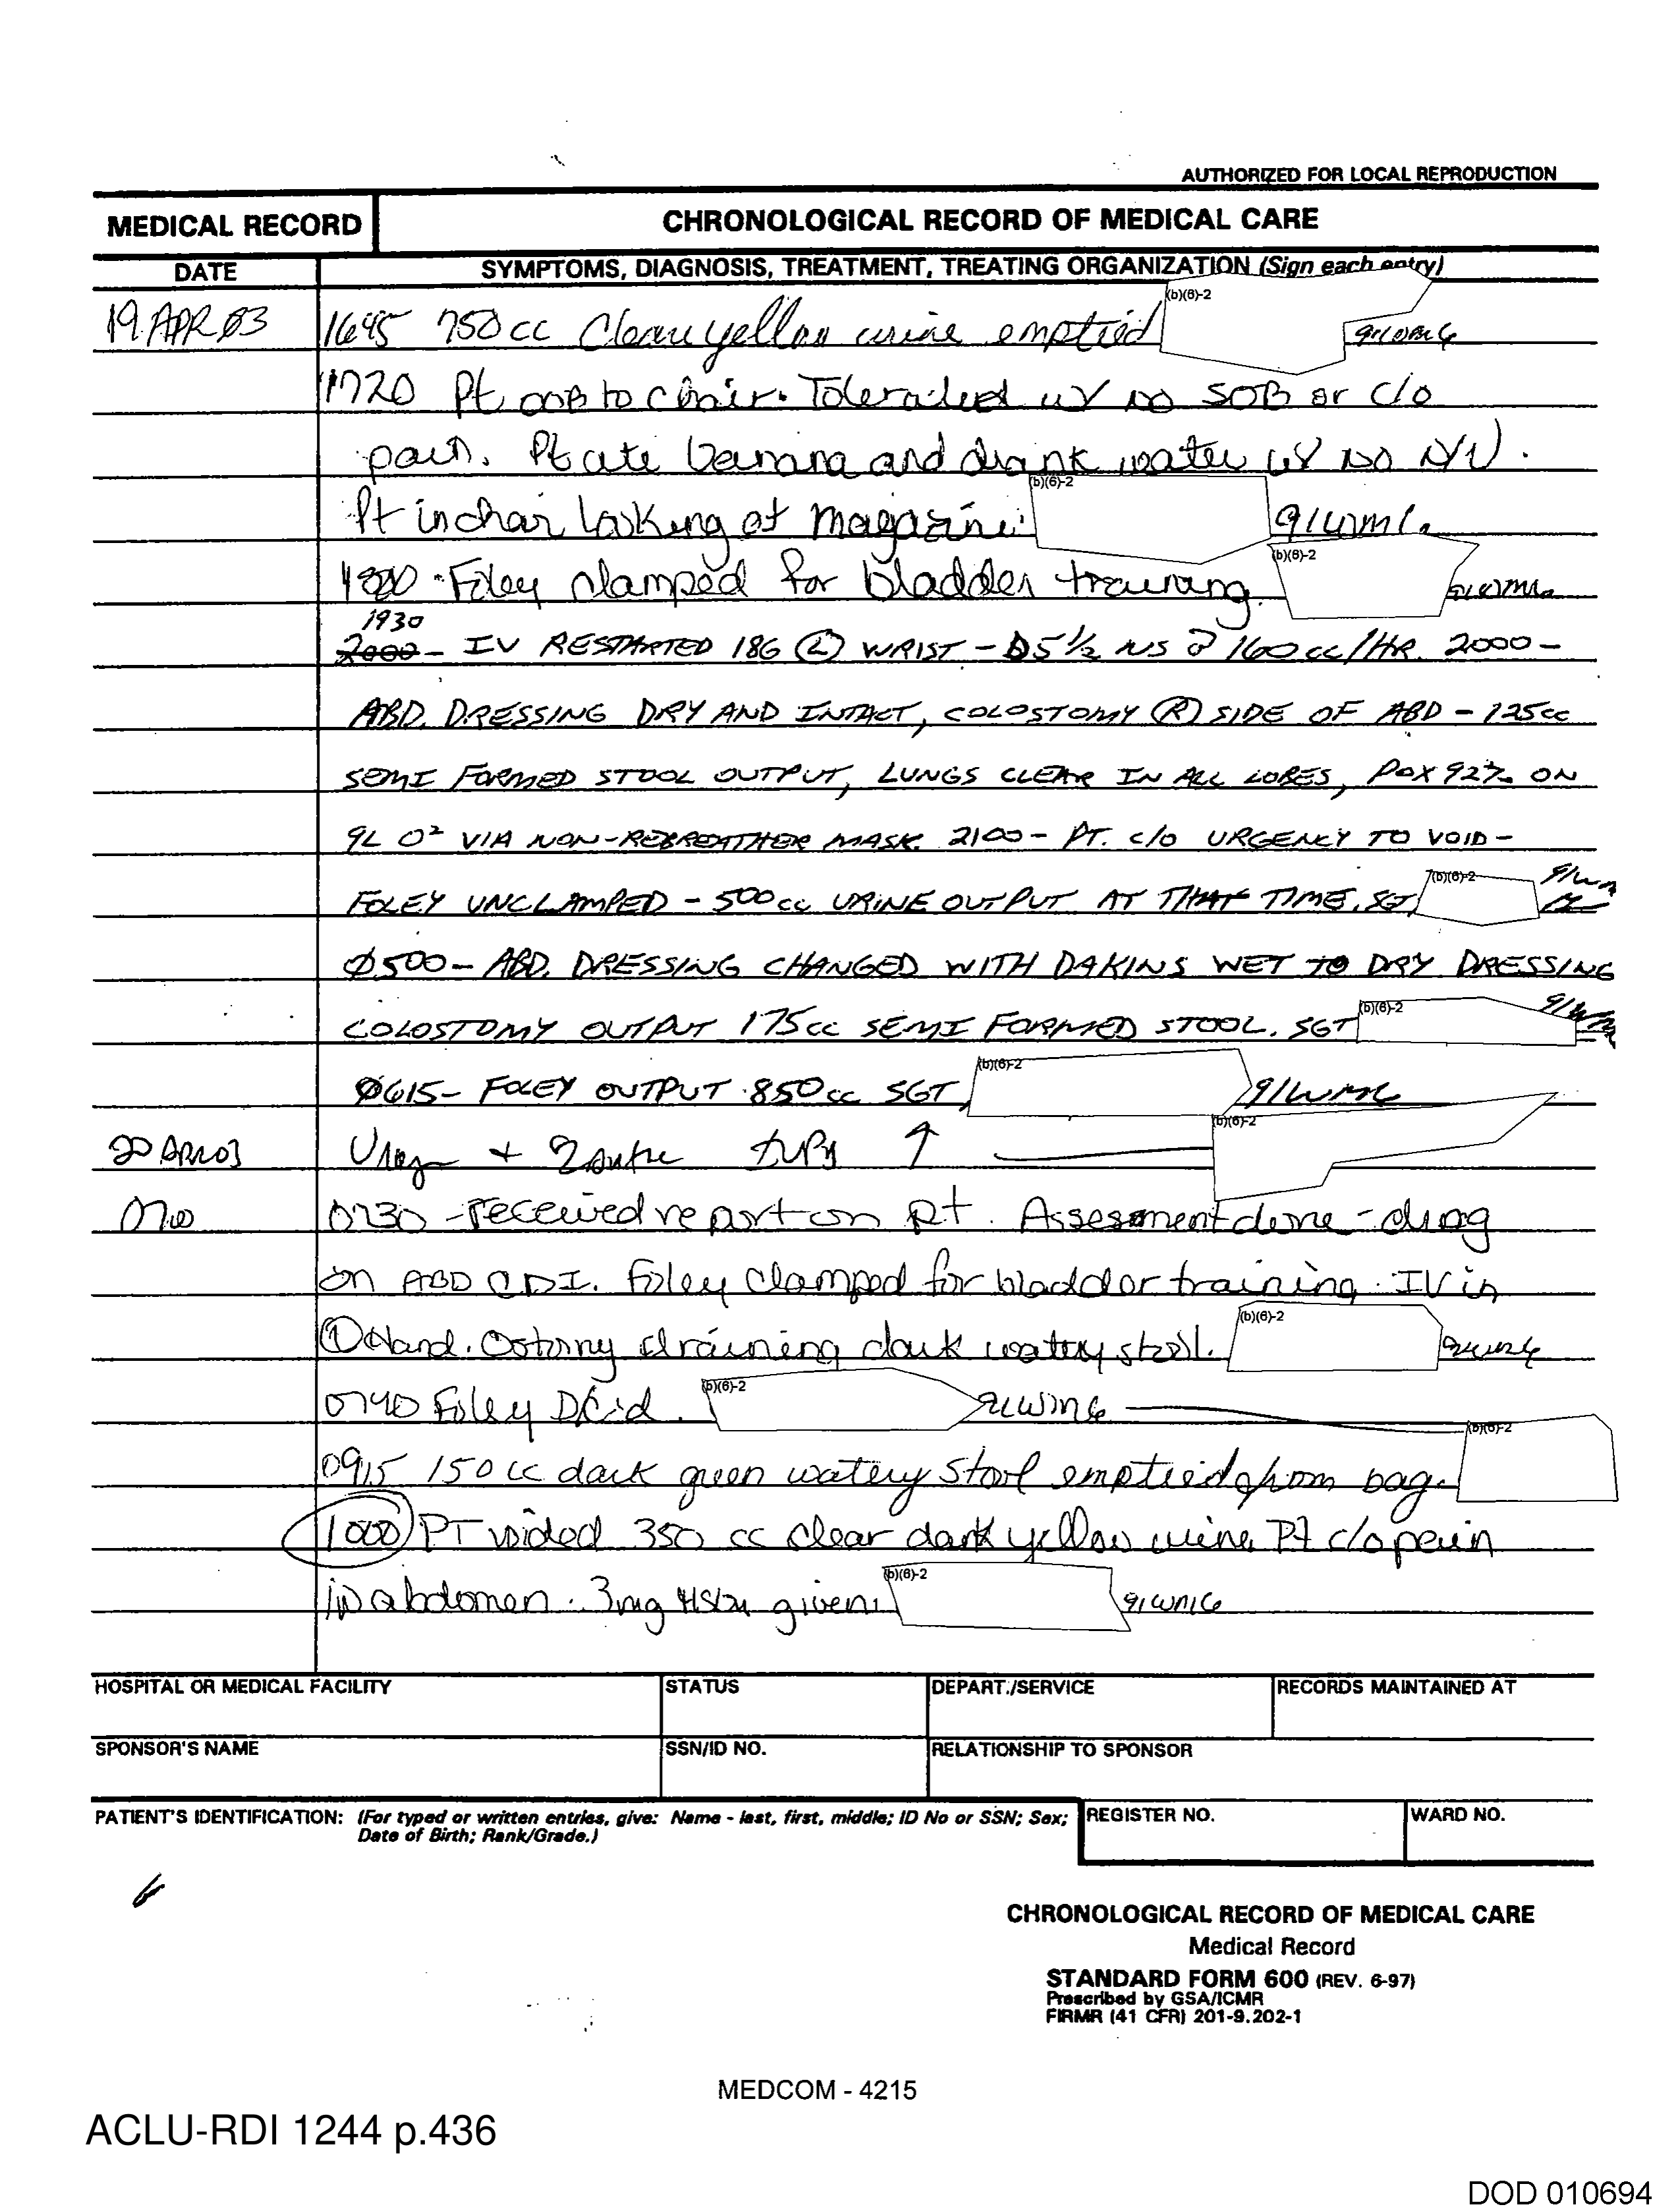 AUTHORIZED FOR LOCAL REPRODUCTION
MEDICAL RECORD
CHRONOLOGICAL RECORD OF MEDICAL CARE
DATE
SYMPTOMS, DIAGNOSIS, TREATMENT, TREATING ORGANIZATION (Sign each entry)
(b)(6)-2
19 APR 03 1645 750cc Clear yellow urine emptied
1720 Pt OOB to chair. Tolerated w/ no SOB or c/o
pain. Pt ate banana and drank water w/ no N/V.
(b)(6)-2
Pt in chair looking at magazine. 91WM6
(b)(6)-2
Foley clamped for bladder training. 91WM6
1930
2000 - IV RESTARTED 18G (L) WRIST - D5 1/2 NS @ 160cc/HR. 2000 -
ABD. DRESSING DRY AND INTACT, COLOSTOMY (R) SIDE OF ABD - 125cc
SEMI FORMED STOOL OUTPUT, LUNGS CLEAR IN ALL LOBES, POX 92% ON
9L O2 VIA NON-REBREATHER MASK. 2100 - PT. C/O URGENCY TO VOID -
(b)(6)-2
FOLEY UNCLAMPED - 500cc URINE OUTPUT AT THAT TIME. SGT
0500 - ABD. DRESSING CHANGED WITH DAKINS WET TO DRY DRESSING
(b)(6)-2
COLOSTOMY OUTPUT 175cc SEMI FORMED STOOL. SGT
(b)(6)-2
0615 - FOLEY OUTPUT 850cc SGT 91WM6
(b)(6)-2
20 APR 03 + ↑
0730 - received report on pt. Assessment done - drsg
on ABD CDI. Foley clamped for bladder training. IV in
(b)(6)-2
(L) Hand. Ostomy draining dark watery stool. 91WM6
(b)(6)-2
0740 Foley DC'd. 91WM6
(b)(6)-2
0915 150cc dark green watery stool emptied from bag.
1000 PT voided 350 cc clear dark yellow urine Pt c/o pain
(b)(6)-2
in abdomen. 3mg given. 91WM6
HOSPITAL OR MEDICAL FACILITY
STATUS
DEPART./SERVICE
RECORDS MAINTAINED AT
SPONSOR'S NAME
SSN/ID NO.
RELATIONSHIP TO SPONSOR
PATIENT'S IDENTIFICATION: (For typed or written entries, give: Name - last, first, middle; ID No or SSN; Sex;
Date of Birth; Rank/Grade.)
REGISTER NO.
WARD NO.
CHRONOLOGICAL RECORD OF MEDICAL CARE
Medical Record
STANDARD FORM 600 (REV. 6-97)
Prescribed by GSA/ICMR
FIRMR (41 CFR) 201-9.202-1
MEDCOM - 4215
ACLU-RDI 1244 p.436
DOD 010694